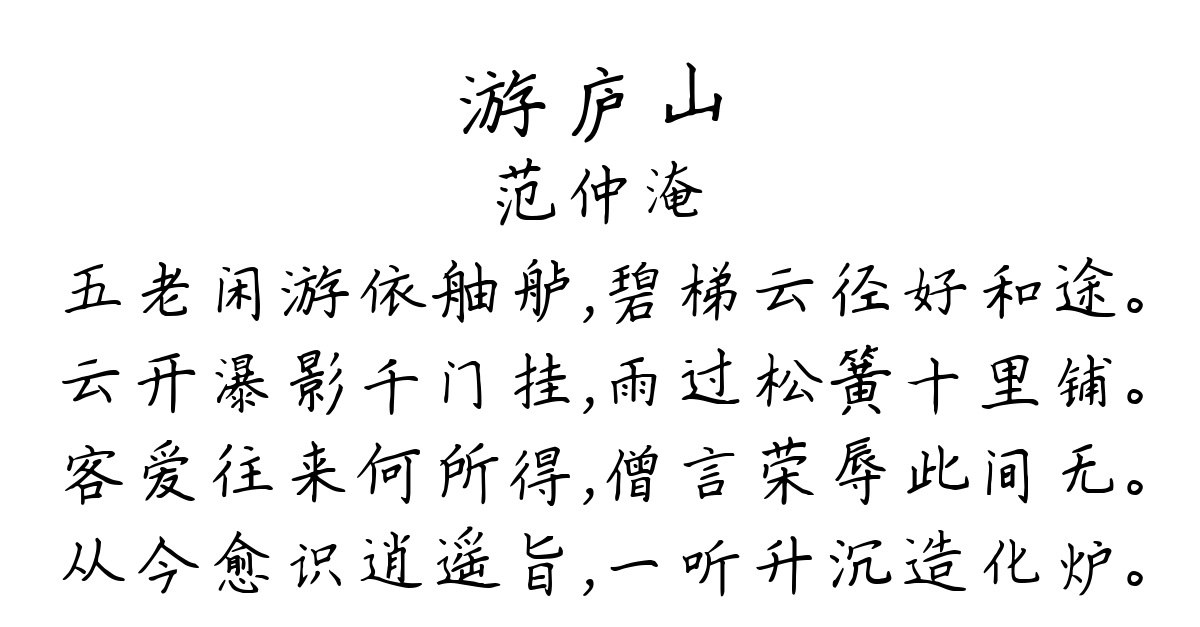 游庐山
范仲淹
五老闲游依舳舻,碧梯云径好和途。
云开瀑影千门挂,雨过松簧十里铺。
客爱往来何所得,僧言荣辱此间无。
从今愈识逍遥旨,一听升沉造化炉。